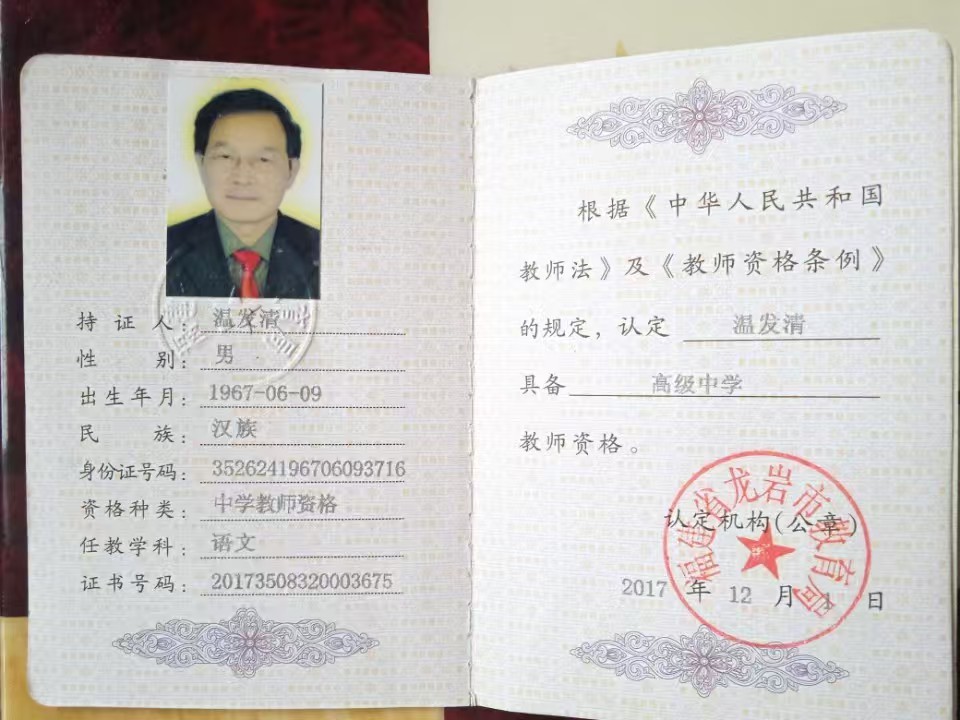 持证人：温发清
性别：男
出生年月：1967-06-09
民族：汉族
身份证号码：352624196706093716
资格种类：中学教师资格
任教学科：语文
证书号码：20173508320003675
根据《中华人民共和国
教师法》及《教师资格条例》
的规定，认定 温发清
具备 高级中学
教师资格。
福建省龙岩市教育局
认定机构(公章)
2017 年 12 月 1 日